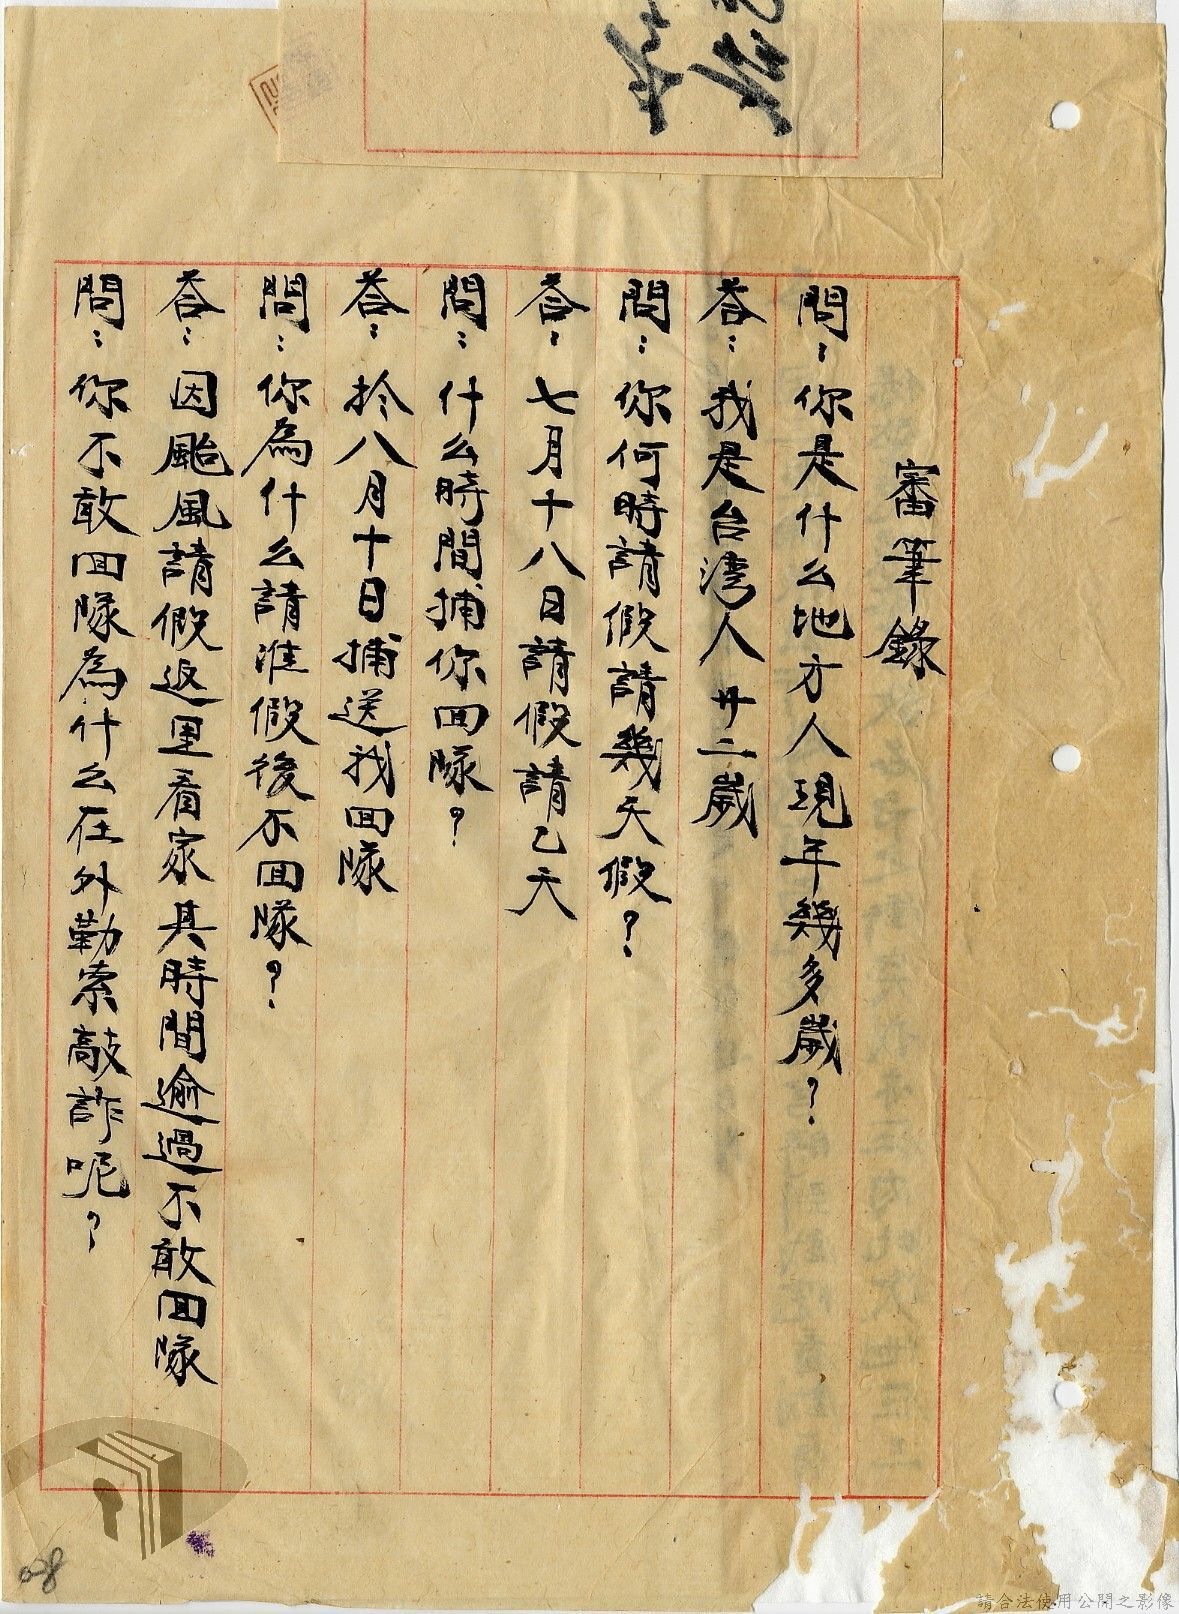 審筆錄
問：你是什么地方人現年幾多歲？
荅：我是台湾人 廿二歲
問：你何時請假請幾天假？
荅：七月十八日請假請乙天
問：什么時間捕你囬隊？
荅：扵八月十日捕送我囬隊
問：你為什么請准假後不囬隊？
荅：因颱風請假返里看家具時間逾過不敢囬隊
問：你不敢囬隊為什么在外勒索敲詐呢？
請合法使用公開之影像